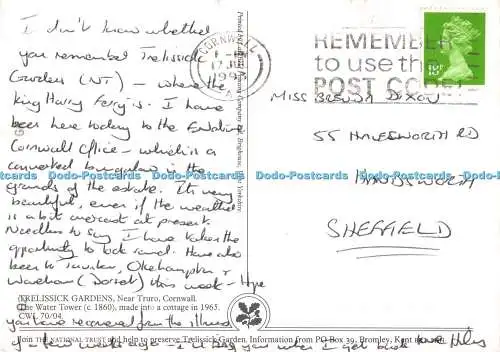 I don't know whether
you remember Trelissick
Gardens (NT) – where the
King Harry Ferry is. I have
been here today to the
Cornwall Office – which is a
converted bungalow in the
grounds of the estate. It's very
beautiful, even if the weather
is a bit overcast at present.
Needless to say I have taken the
opportunity to look round. Have also
been to Okehampton &
Wareham (Dorset) this week – Hope
TRELISSICK GARDENS, Near Truro, Cornwall.
The Water Tower (c. 1860), made into a cottage in 1965.
CWL 70/04
you have recovered from the illness
of a few weeks ago – I'll ring you when I get back love
Join THE NATIONAL TRUST and help to preserve Trelissick Garden. Information from PO Box 39, Bromley, Kent
CORNWALL
REMEMBER
to use the
POST CODE
MISS BRENDA DIXON
55 HALESWORTH RD
HANDSWORTH
SHEFFIELD
Dodo-Postcards Dodo-Postcards Dodo-Postcards Dodo-Postcards